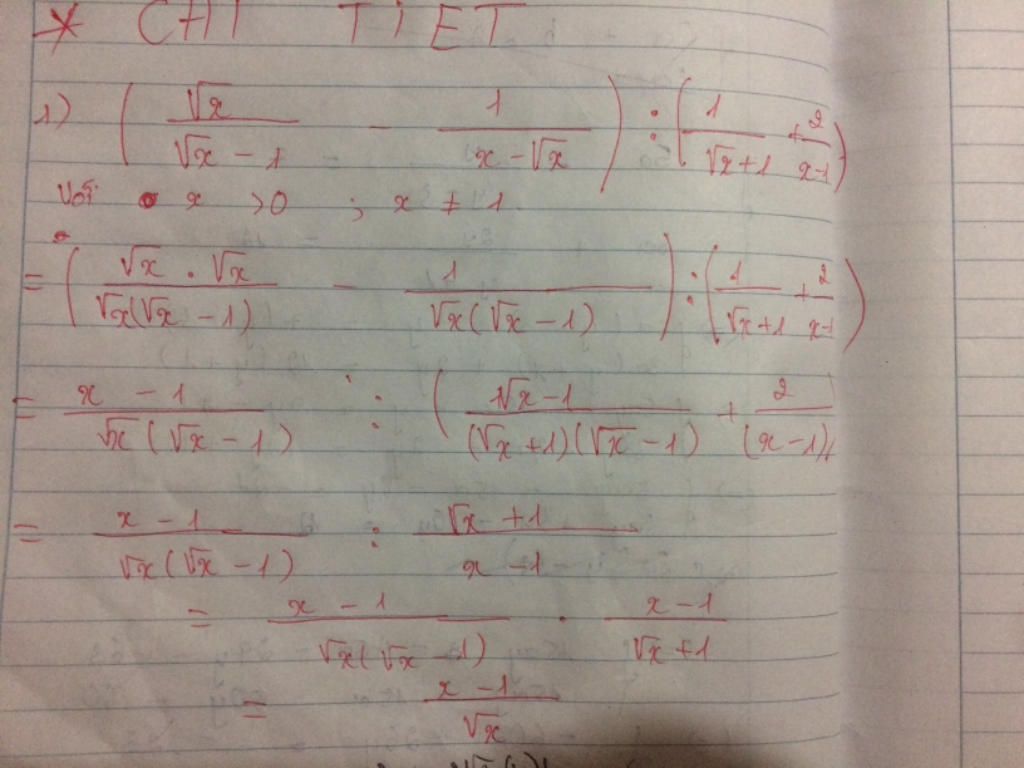 * CHI TIẾT
1) ( √x / (√x - 1) - 1 / (x - √x) ) : ( 1 / (√x + 1) + 2 / (x - 1) )
Với x > 0 ; x ≠ 1
= ( √x . √x / √x(√x - 1) - 1 / √x(√x - 1) ) : ( 1 / (√x + 1) + 2 / (x - 1) )
= (x - 1) / √x(√x - 1) : ( (√x - 1) / (√x + 1)(√x - 1) + 2 / (x - 1) )
= (x - 1) / √x(√x - 1) : (√x + 1) / (x - 1)
= (x - 1) / √x(√x - 1) . (x - 1) / (√x + 1)
= (x - 1) / √x